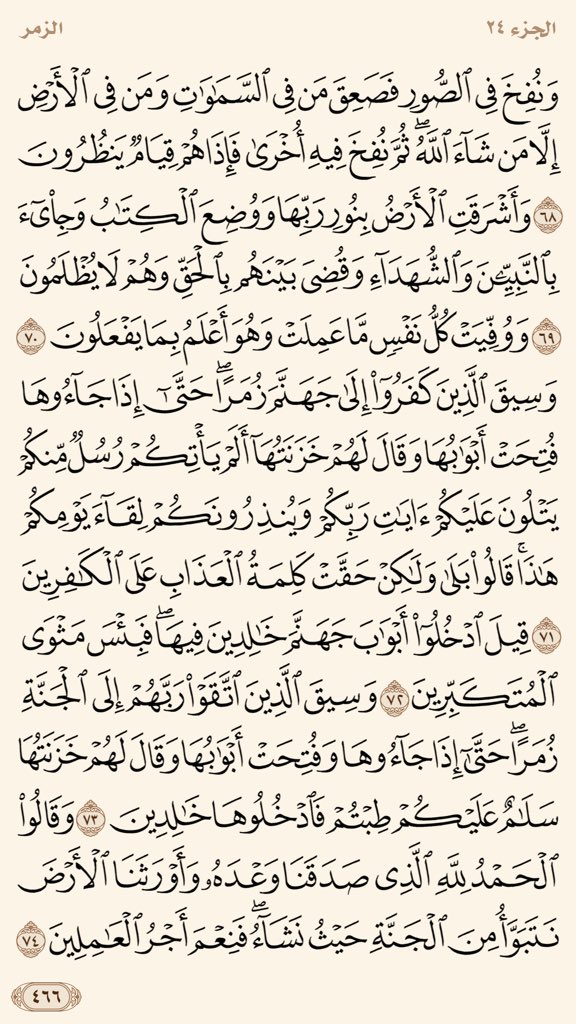 الجزء ٢٤
الزمر
وَنُفِخَ فِي ٱلصُّورِ فَصَعِقَ مَن فِي ٱلسَّمَٰوَٰتِ وَمَن فِي ٱلۡأَرۡضِ
إِلَّا مَن شَآءَ ٱللَّهُۖ ثُمَّ نُفِخَ فِيهِ أُخۡرَىٰ فَإِذَا هُمۡ قِيَامٞ يَنظُرُونَ
٦٨ وَأَشۡرَقَتِ ٱلۡأَرۡضُ بِنُورِ رَبِّهَا وَوُضِعَ ٱلۡكِتَٰبُ وَجِاْيٓءَ
بِٱلنَّبِيِّـۧنَ وَٱلشُّهَدَآءِ وَقُضِيَ بَيۡنَهُم بِٱلۡحَقِّ وَهُمۡ لَا يُظۡلَمُونَ
٦٩ وَوُفِّيَتۡ كُلُّ نَفۡسٖ مَّا عَمِلَتۡ وَهُوَ أَعۡلَمُ بِمَا يَفۡعَلُونَ ٧٠
وَسِيقَ ٱلَّذِينَ كَفَرُوٓاْ إِلَىٰ جَهَنَّمَ زُمَرًاۖ حَتَّىٰٓ إِذَا جَآءُوهَا
فُتِحَتۡ أَبۡوَٰبُهَا وَقَالَ لَهُمۡ خَزَنَتُهَآ أَلَمۡ يَأۡتِكُمۡ رُسُلٞ مِّنكُمۡ
يَتۡلُونَ عَلَيۡكُمۡ ءَايَٰتِ رَبِّكُمۡ وَيُنذِرُونَكُمۡ لِقَآءَ يَوۡمِكُمۡ
هَٰذَاۚ قَالُواْ بَلَىٰ وَلَٰكِنۡ حَقَّتۡ كَلِمَةُ ٱلۡعَذَابِ عَلَى ٱلۡكَٰفِرِينَ
٧١ قِيلَ ٱدۡخُلُوٓاْ أَبۡوَٰبَ جَهَنَّمَ خَٰلِدِينَ فِيهَاۖ فَبِئۡسَ مَثۡوَى
ٱلۡمُتَكَبِّرِينَ ٧٢ وَسِيقَ ٱلَّذِينَ ٱتَّقَوۡاْ رَبَّهُمۡ إِلَى ٱلۡجَنَّةِ
زُمَرًاۖ حَتَّىٰٓ إِذَا جَآءُوهَا وَفُتِحَتۡ أَبۡوَٰبُهَا وَقَالَ لَهُمۡ خَزَنَتُهَا
سَلَٰمٌ عَلَيۡكُمۡ طِبۡتُمۡ فَٱدۡخُلُوهَا خَٰلِدِينَ ٧٣ وَقَالُواْ
ٱلۡحَمۡدُ لِلَّهِ ٱلَّذِي صَدَقَنَا وَعۡدَهُۥ وَأَوۡرَثَنَا ٱلۡأَرۡضَ
نَتَبَوَّأُ مِنَ ٱلۡجَنَّةِ حَيۡثُ نَشَآءُۖ فَنِعۡمَ أَجۡرُ ٱلۡعَٰمِلِينَ ٧٤
٤٦٦